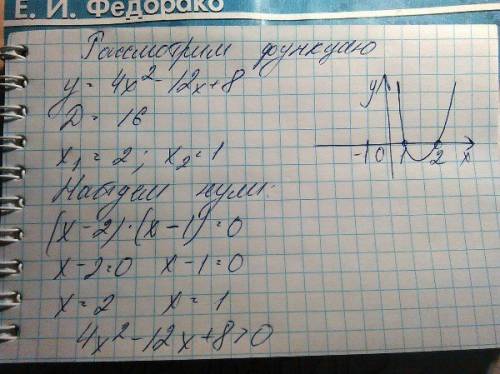 Е. И. Федорако
Рассмотрим функцию
y = 4x² - 12x + 8
D = 16
x₁ = 2; x₂ = 1
Найдем нули:
(x - 2) · (x - 1) = 0
x - 2 = 0 x - 1 = 0
x = 2 x = 1
4x² - 12x + 8 > 0
y
-1 0 1 2 x